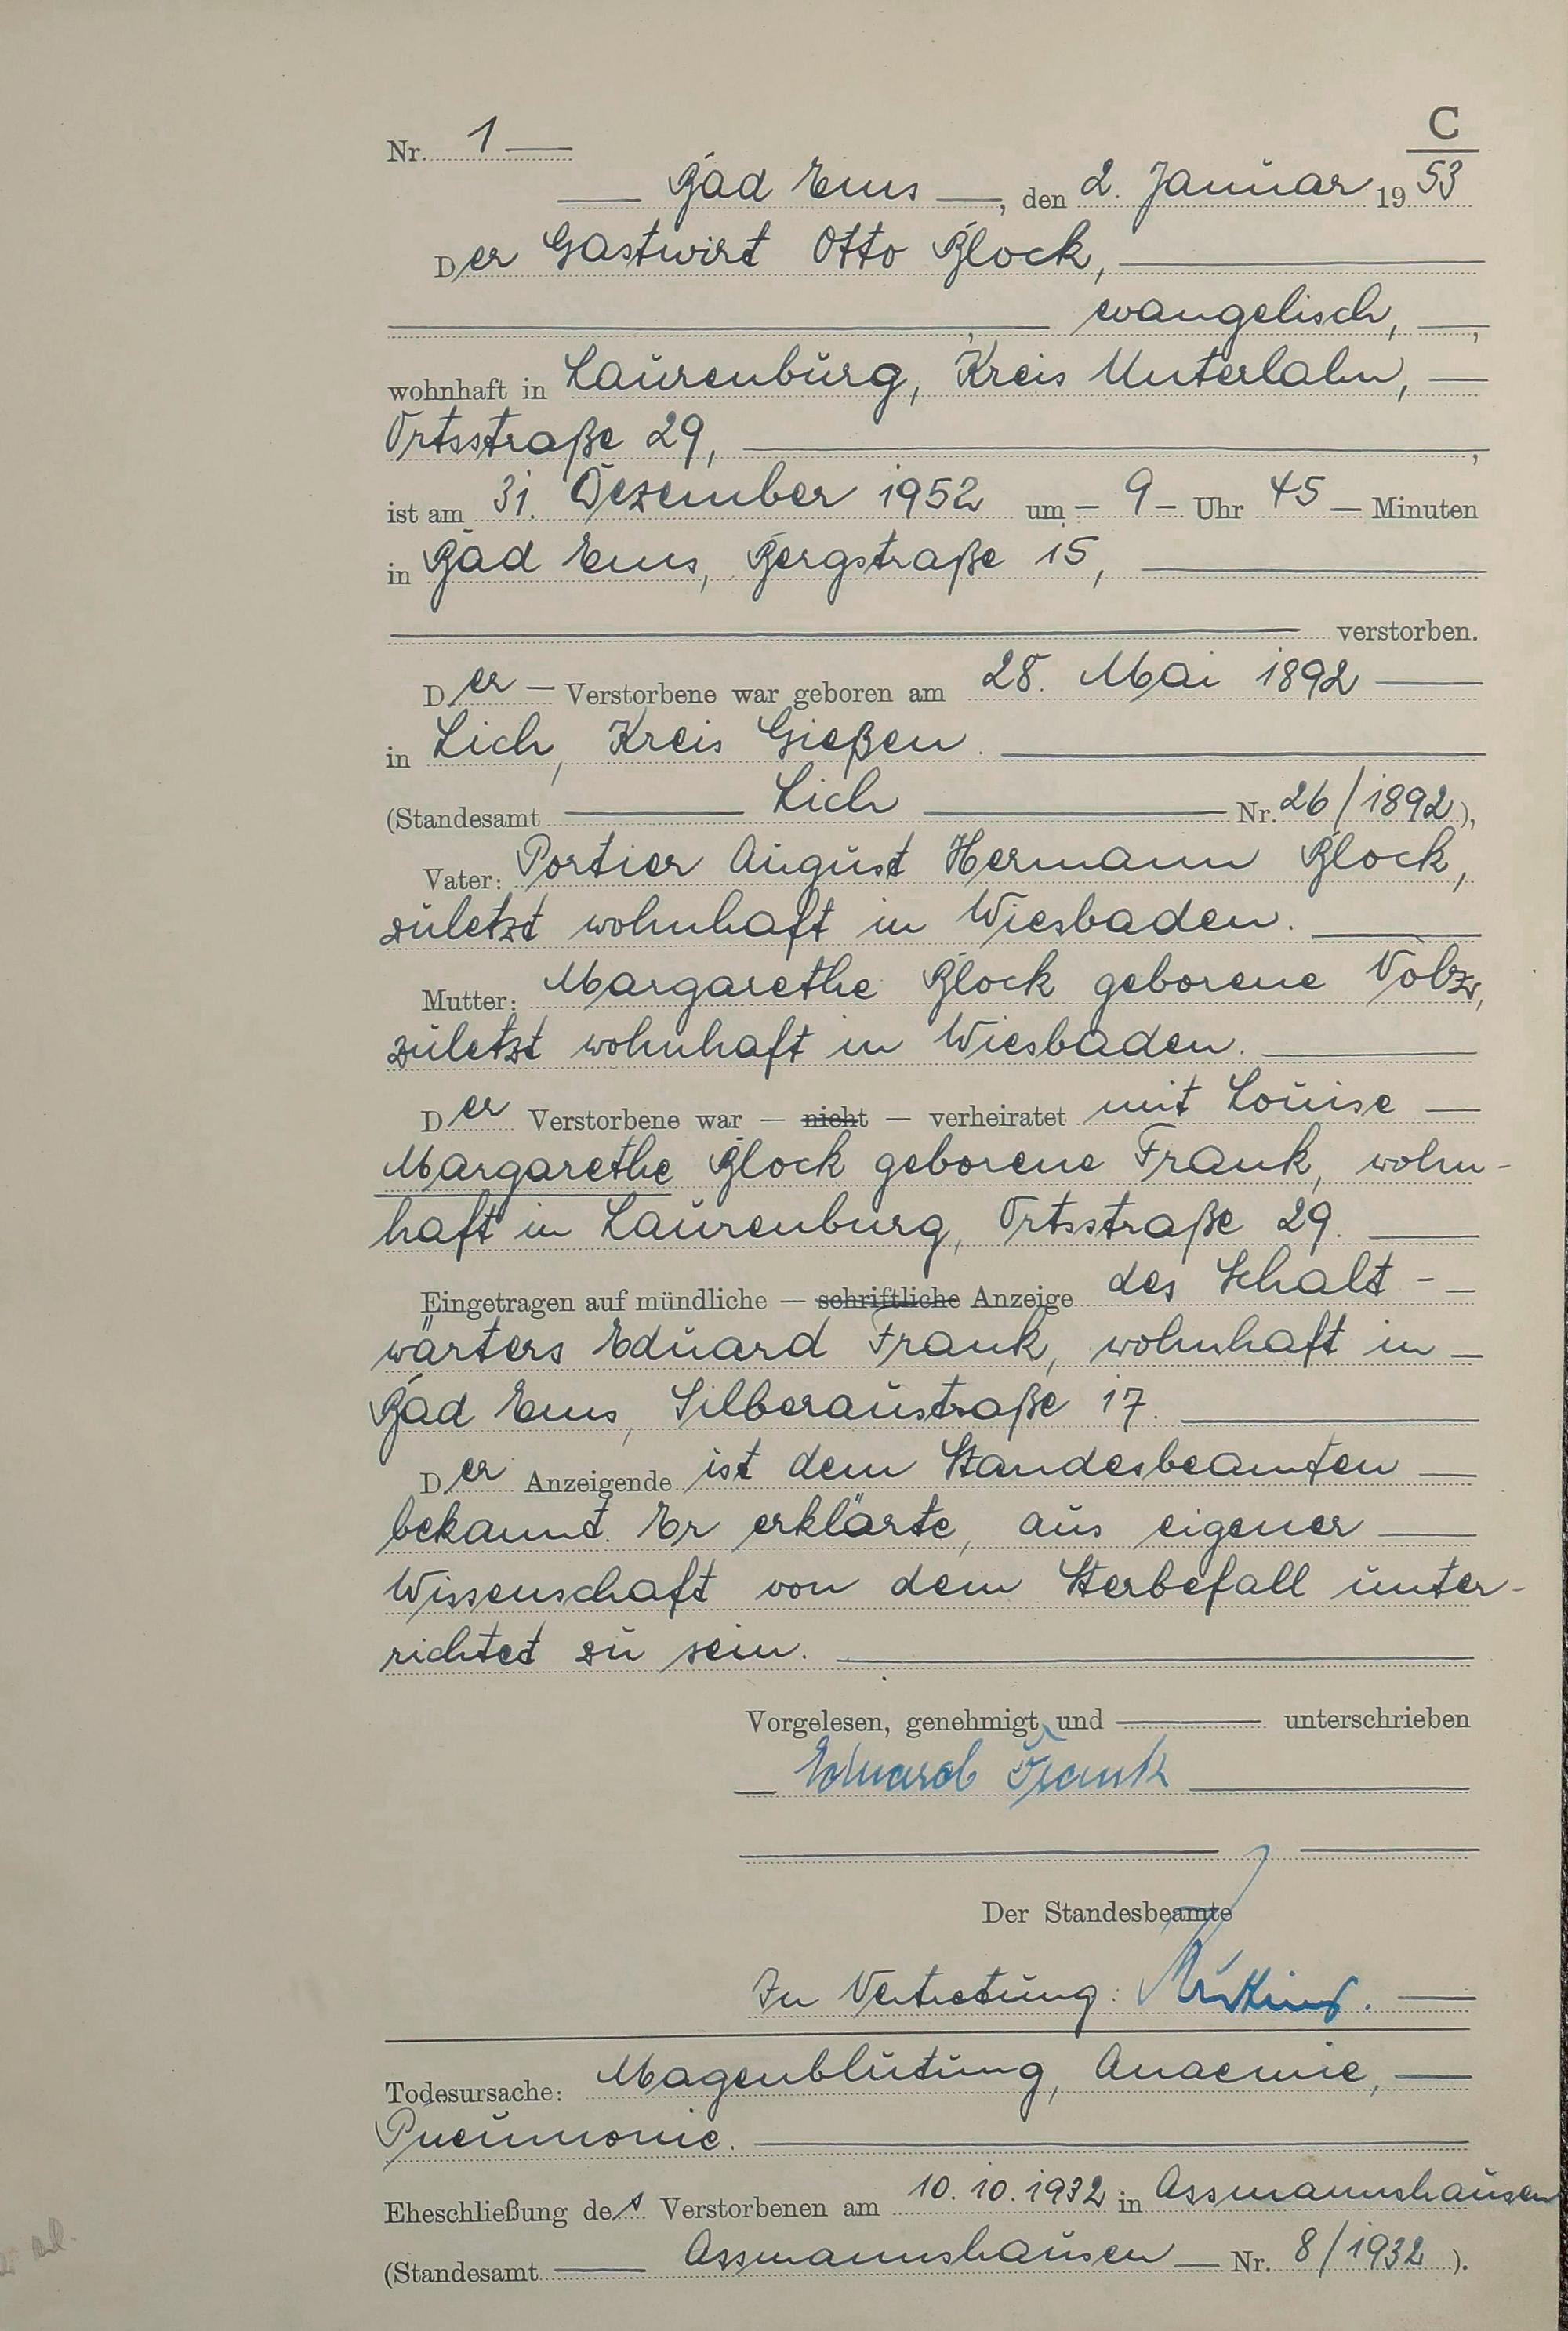 C
Nr. 1
Bad Ems, den 2. Januar 1953
Der Gastwirt Otto Block,
evangelisch,
wohnhaft in Laurenburg, Kreis Unterlahn,
Ortsstraße 29,
ist am 31. Dezember 1952 um 9 Uhr 45 Minuten
in Bad Ems, Bergstraße 15,
verstorben.
Der Verstorbene war geboren am 28. Mai 1892
in Lich, Kreis Gießen.
(Standesamt Lich Nr. 26/1892),
Vater: Portier August Hermann Block,
zuletzt wohnhaft in Wiesbaden.
Mutter: Margarethe Block geborene Volz,
zuletzt wohnhaft in Wiesbaden.
Der Verstorbene war — nicht — verheiratet mit Louise
Margarethe Block geborene Frank, wohn-
haft in Laurenburg, Ortsstraße 29.
Eingetragen auf mündliche — schriftliche Anzeige des Schalt-
wärters Eduard Frank, wohnhaft in
Bad Ems, Silberaustraße 17.
Der Anzeigende ist dem Standesbeamten
bekannt. Er erklärte, aus eigener
Wissenschaft von dem Sterbefall unter-
richtet zu sein.
Vorgelesen, genehmigt und unterschrieben
Eduard Frank
Der Standesbeamte
In Vertretung:
Todesursache: Magenblutung, Anaemie,
Pneumonie.
Eheschließung des Verstorbenen am 10.10.1932 in Assmannshausen
(Standesamt Assmannshausen Nr. 8/1932).